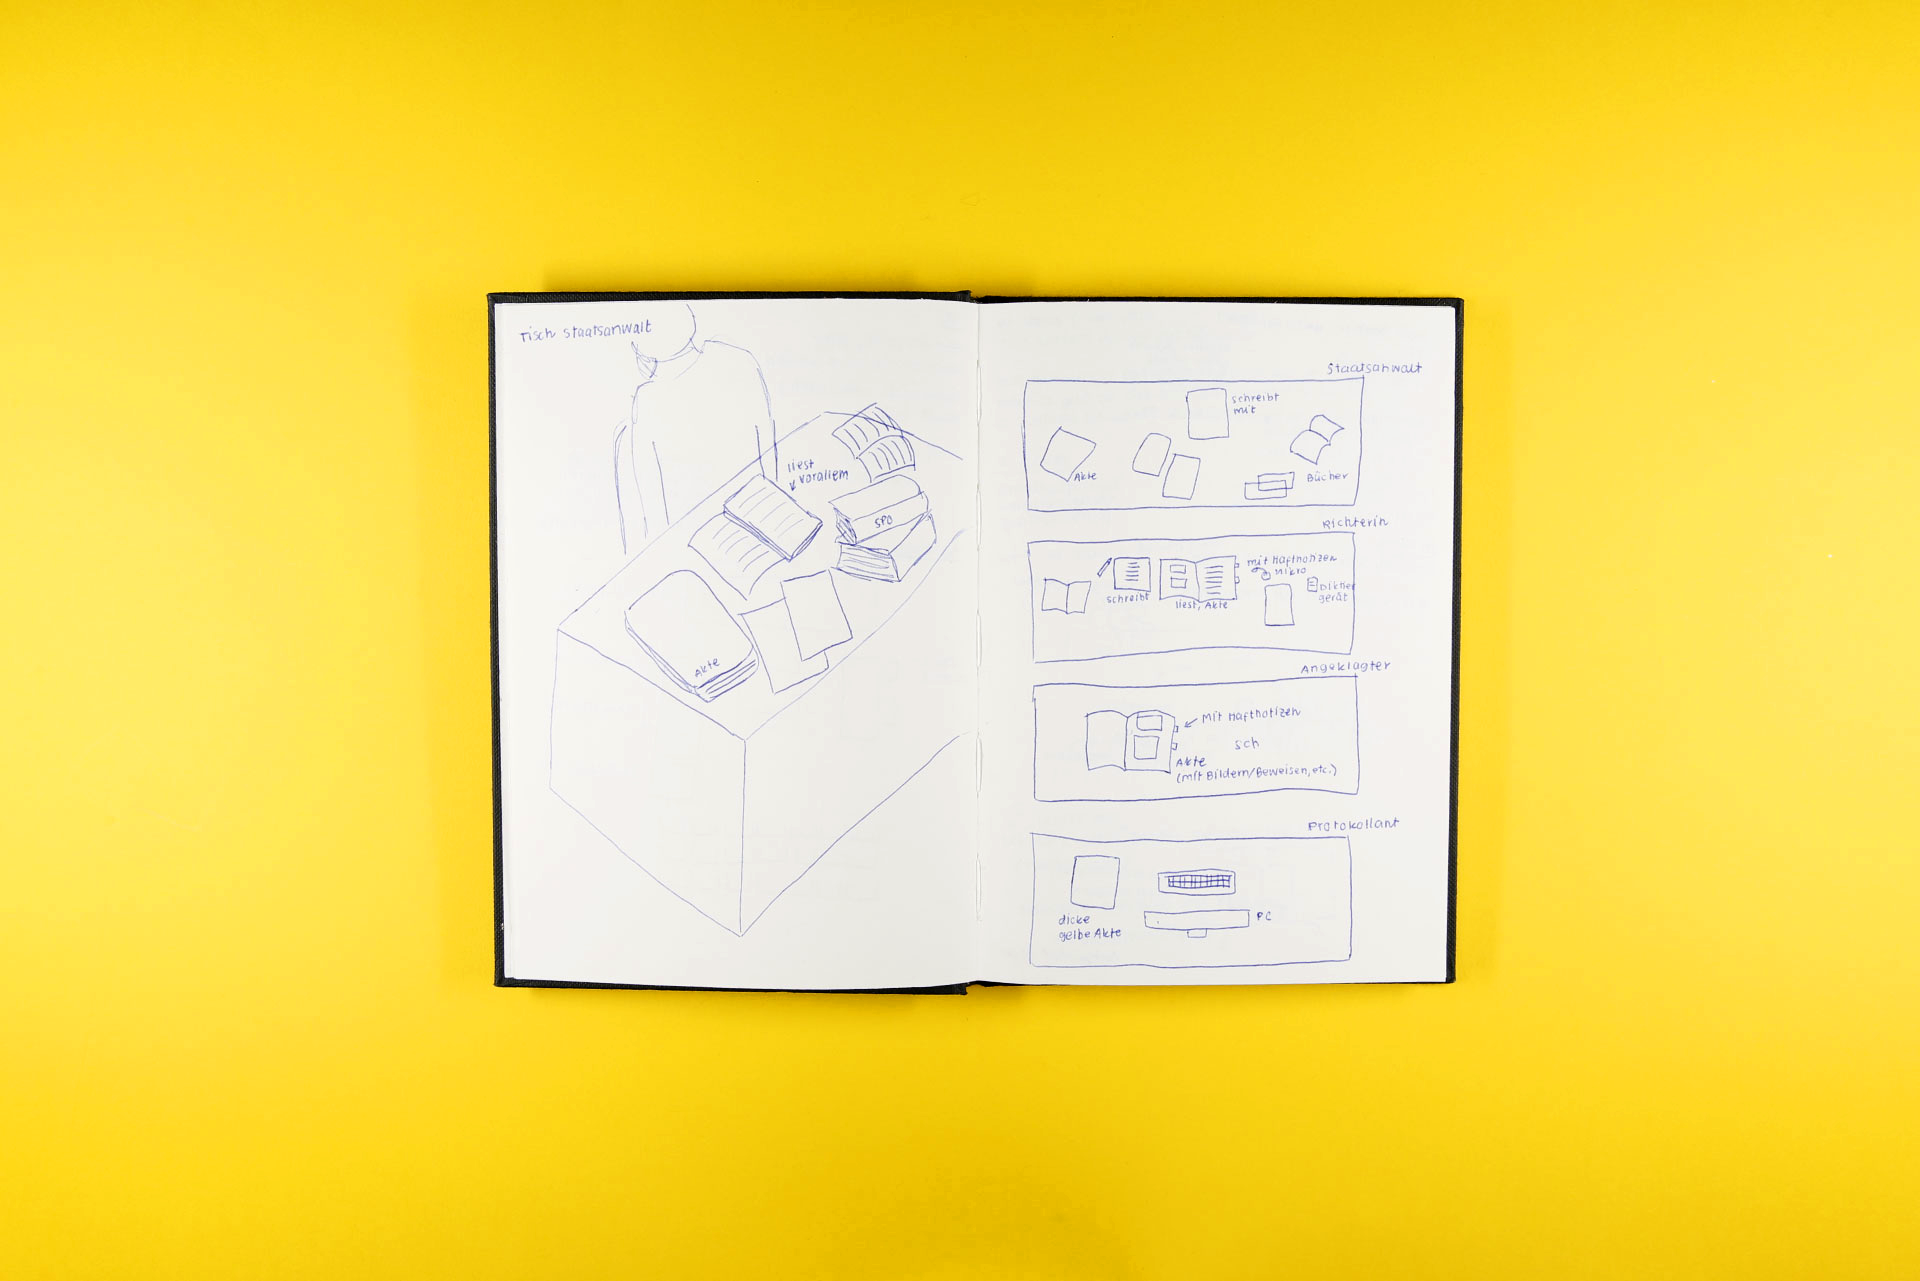 Tisch Staatsanwalt
liest
vorallem
SPO
Akte
Staatsanwalt
schreibt
mit
Akte
Bücher
Richterin
mit Haftnotizen
mikro
Diktier
gerät
schreibt
liest, Akte
Angeklagter
Mit Haftnotizen
sch
Akte
(mit Bildern/Beweisen, etc.)
Protokollant
dicke
gelbe Akte
PC